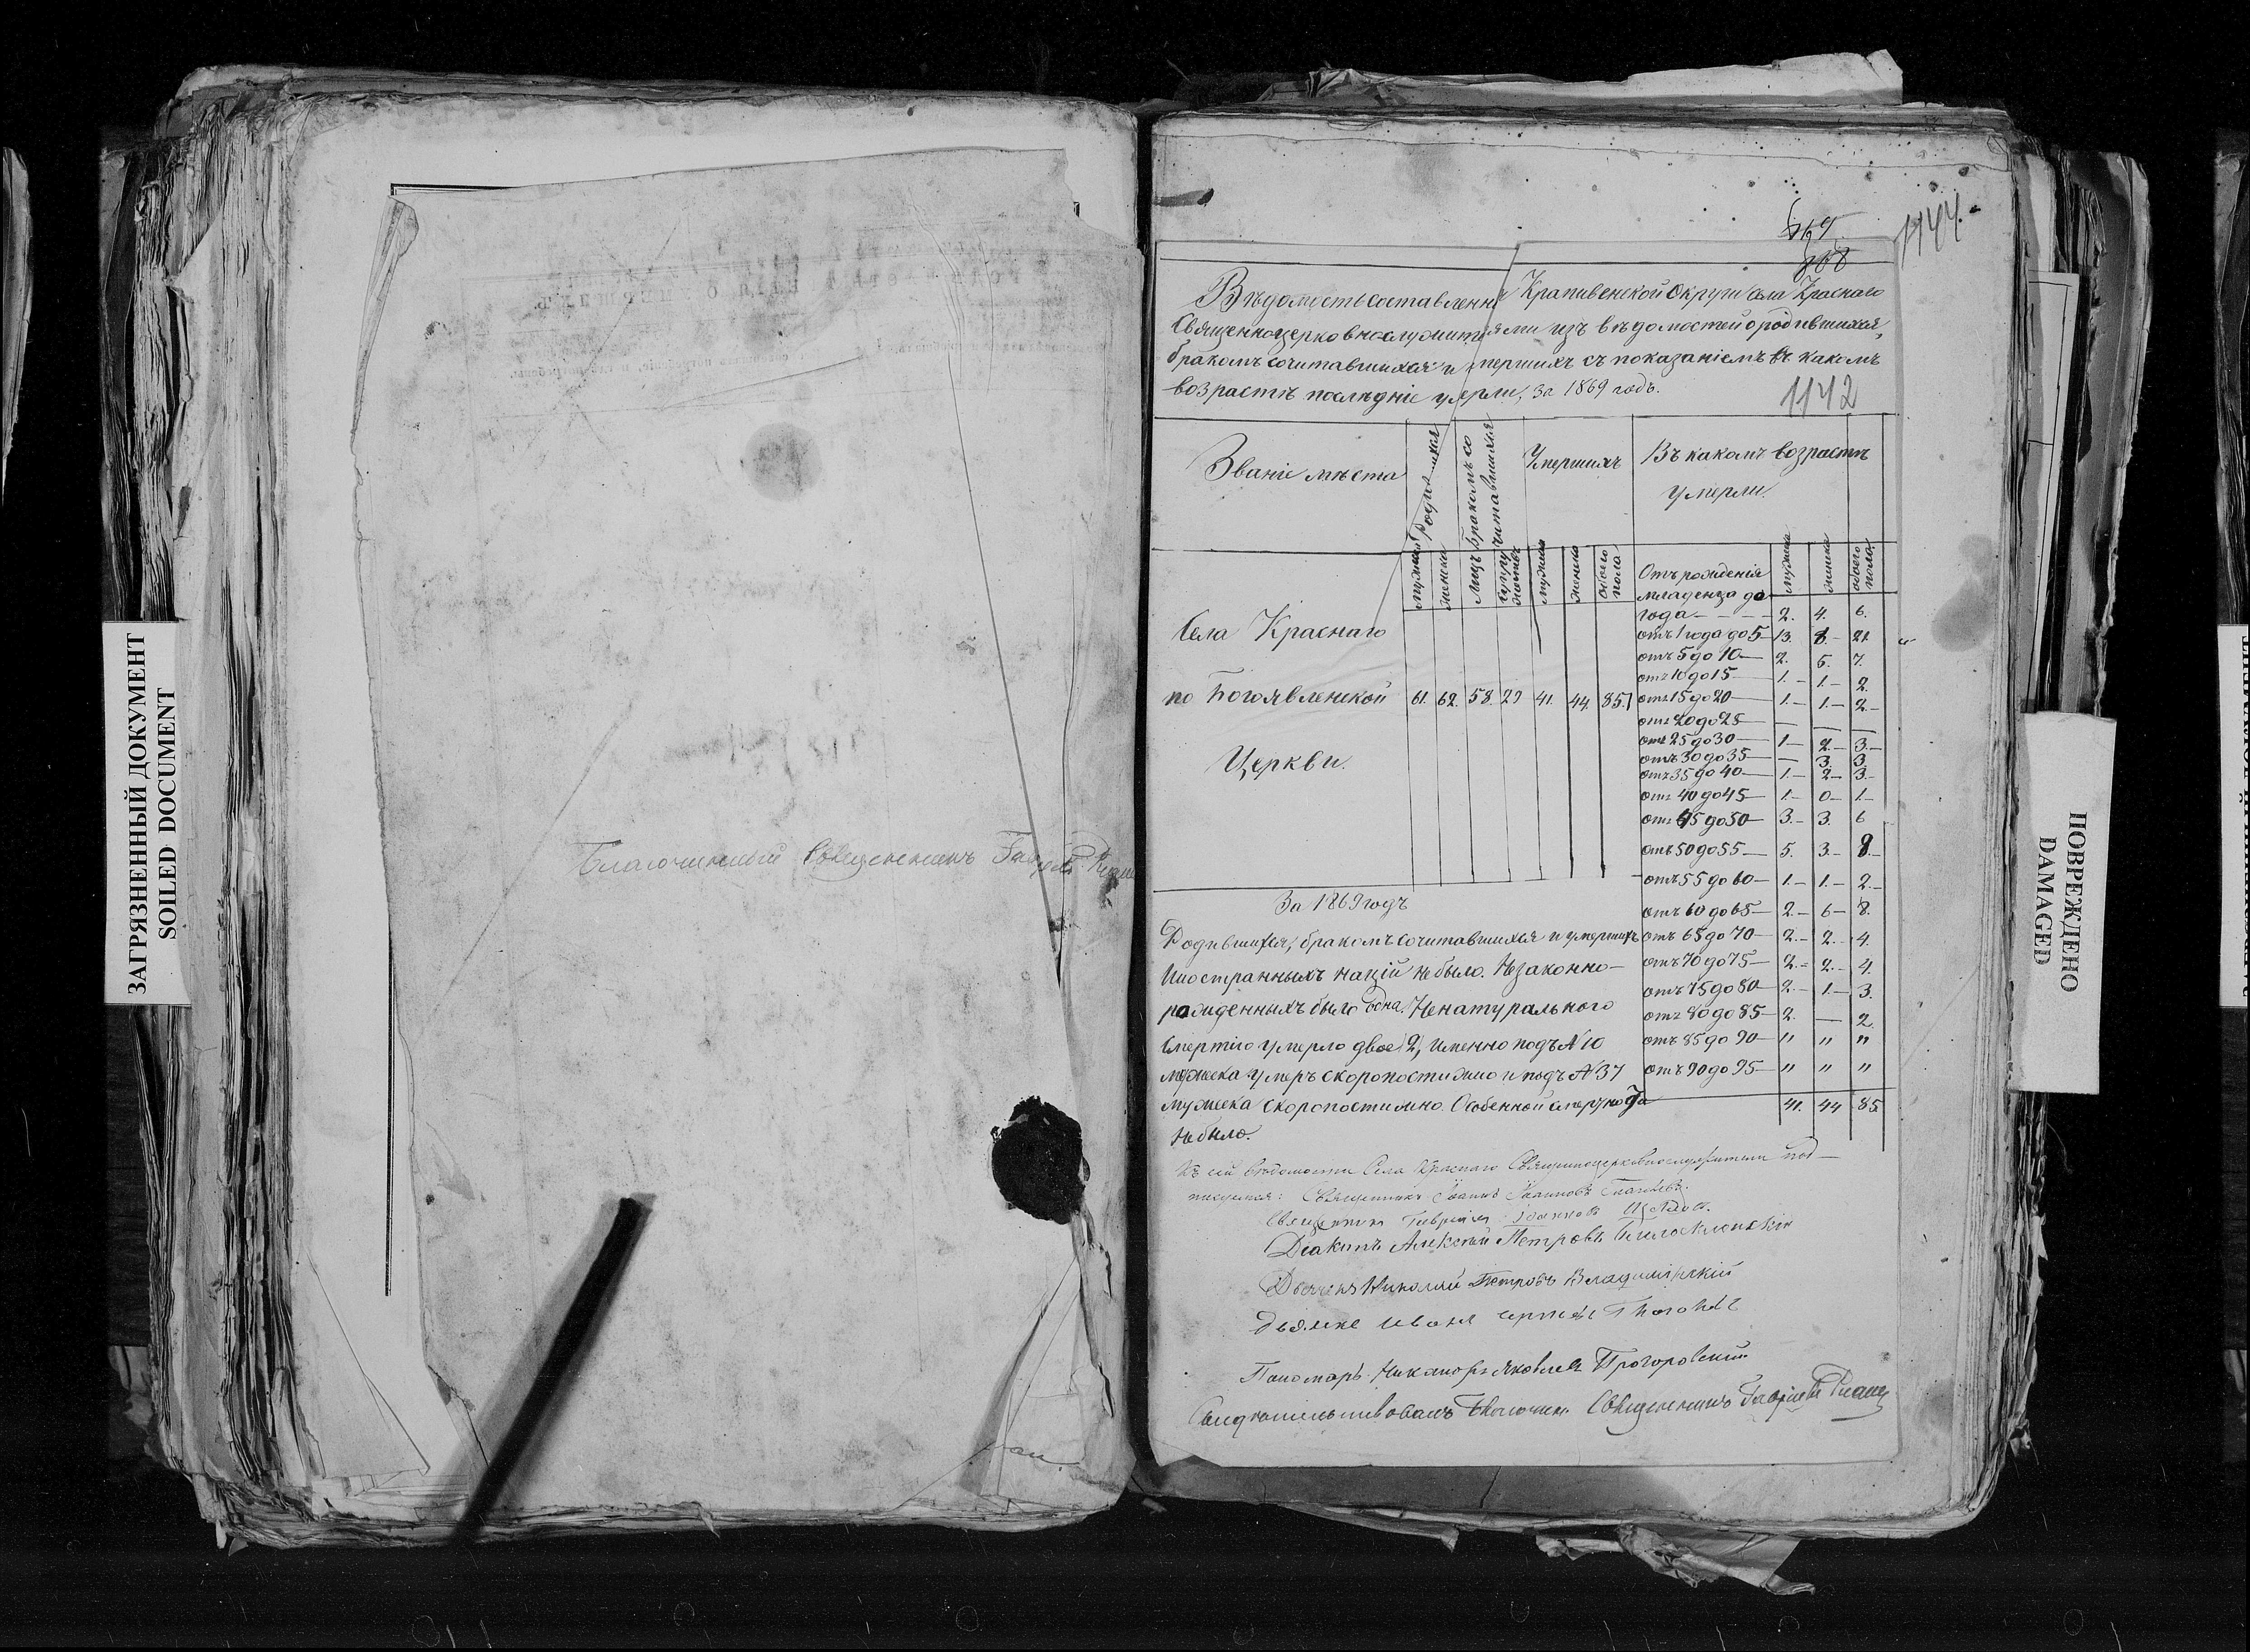 ЗАГРЯЗНЕННЫЙ ДОКУМЕНТ
SOILED DOCUMENT
Благочинный Священникъ
1144
869
868
Вѣдомость составленна Крапивенской Округи села Краснаго
Священноцерковнослужителями изъ вѣдомостей о родившихся,
бракомъ сочитавшихся и умершихъ съ показаніемъ въ какомъ
возрастѣ послѣдніе умерли, за 1869 годъ.
1142
Званіе мѣста
Родившихся
Бракомъ со
читавшихся
Умершихъ
Въ какомъ возрастѣ
умерли.
мужска
женска
Лицъ
Супру
жествъ
мужска
женска
Обоего
пола
Отъ рожденія
младенца до
мужска
женска
обоего
пола
года - - - 2. 4. 6.
отъ 1 года до 5 13. 8. 21.
отъ 5 до 10 2. 5. 7.
отъ 10 до 15 1. 1. 2.
отъ 15 до 20 1. 1. 2.
отъ 20 до 25 — — —
отъ 25 до 30 1. 2. 3.
отъ 30 до 35 — 3. 3.
отъ 35 до 40 1. 2. 3.
отъ 40 до 45 1. 0 1.
отъ 45 до 50 3. 3. 6
отъ 50 до 55 5. 3. 8.
отъ 55 до 60 1. 1. 2.
отъ 60 до 65 2. 6 8.
отъ 65 до 70 2. 2. 4.
отъ 70 до 75 2. 2. 4.
отъ 75 до 80 2. 1. 3.
отъ 80 до 85 2. — 2.
отъ 85 до 90 " " "
отъ 90 до 95 " " "
41. 44 85
Села Краснаго
по Богоявленской 61. 62. 58. 29 41. 44. 85.
Церкви.
За 1869 годъ
Родившихся, бракомъ сочитавшихся и умершихъ
Иностранныхъ націй не было. Незаконно-
рожденныхъ было одна. Ненатурального
Смертію умерло двое 2, именно подъ № 10
мужска умеръ скоропостижно и подъ № 37
мужска скоропостижно. Особенной
не было.
Къ сей вѣдомости Села Краснаго Священноцерковнослужители под-
писуемся: Священникъ Іоаннъ
Священникъ Гавріилъ Іоанновъ
Діаконъ Алексѣй Петровъ
Дьячекъ Николай Петровъ Владимірскій
Дьячекъ Иванъ
Пономарь Никаноръ Яковлевъ
Свидѣтельствовалъ Благочин. Священникъ Гавріилъ
ПОВРЕЖДЕНО
DAMAGED